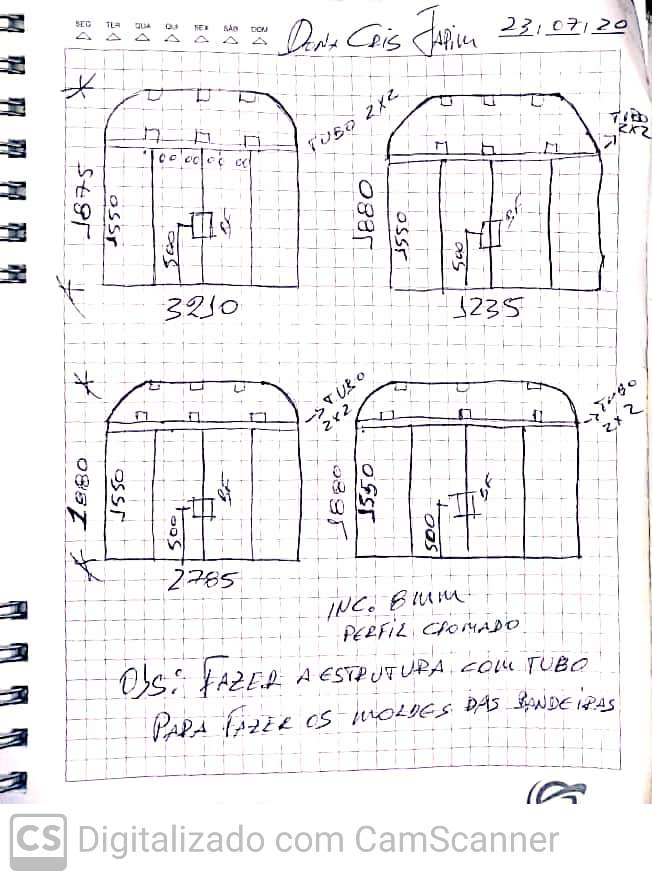 SEG TER QUA QUI SEX SÁB DOM
DONA CRIS JAPIIM 23/07/20
TUBO 2x2
1875
1550
500
BF
3210
TUBO
2x2
1880
1550
500
BF
1235
TUBO
2x2
1880
1550
500
BF
2785
TUBO
2x2
1880
1550
500
BF
INC. 8mm
PERFIL CROMADO
Obs: FAZER A ESTRUTURA COM TUBO
PARA FAZER OS MOLDES DAS BANDEIRAS
CS Digitalizado com CamScanner